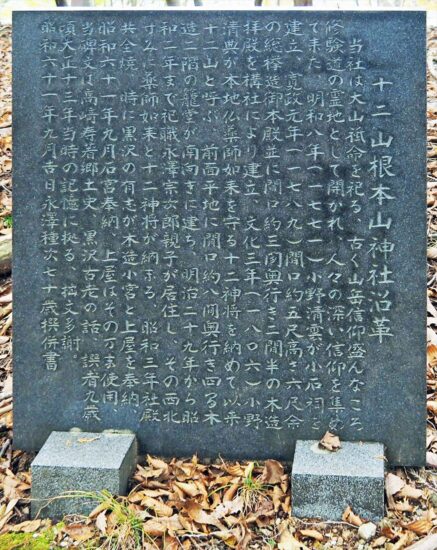 十二山根本山神社沿革
当社は大山祇命を祀る、古く山岳信仰盛んなころ
修験道の霊地として開かれ、人々の深い信仰を集め
て来た、明和八年(一七七一)小野清雲が小石祠を
建立、寛政元年(一七八九)間口約五尺高さ六尺余
の総欅造御本殿並に間口約三間奥行き二間半の木造
拝殿を構社により建立、文化三年(一八〇六)小野
清典が本地仏薬師如来を守る十二神将を納めて以来
十二山と呼ぶ、前面平地に間口約八間奥行き四間木
造二階の籠堂が南向きに建ち、明治二十九年から昭
和二年まで祀職永澤宗次郎親子が居住し、その西北
すみに薬師如来と十二神将が納まる、昭和三年社殿
共全焼、時に黒沢の有志が木造小宮と上屋を奉納、
昭和六十一年九月石宮奉納、上屋はその万ま使用、
当碑文は高崎寿若郷土史、黒沢古老の話、撰者九歳
頃大正十三年当時の記憶に拠る、拙文多謝、
昭和六十一年九月吉日永澤種次七十歳撰併書